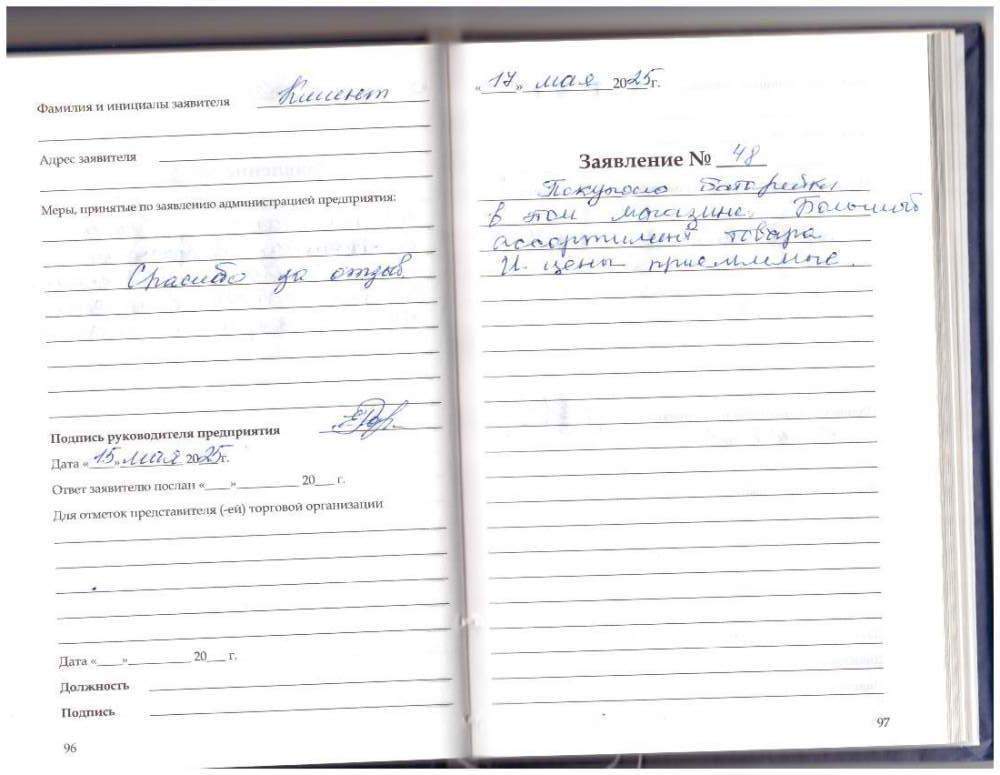 Фамилия и инициалы заявителя Клиент
Адрес заявителя
Меры, принятые по заявлению администрацией предприятия:
Спасибо за отзыв
Подпись руководителя предприятия
Дата «15» мая 2025г.
Ответ заявителю послан «___»__________ 20___ г.
Для отметок представителя (-ей) торговой организации
Дата «____»__________ 20___ г.
Должность
Подпись
96
«17» мая 2025г.
Заявление № 48
Покупала батарейки
в этом магазине. Большой
ассортимент товара
И цены приемлемые.
97